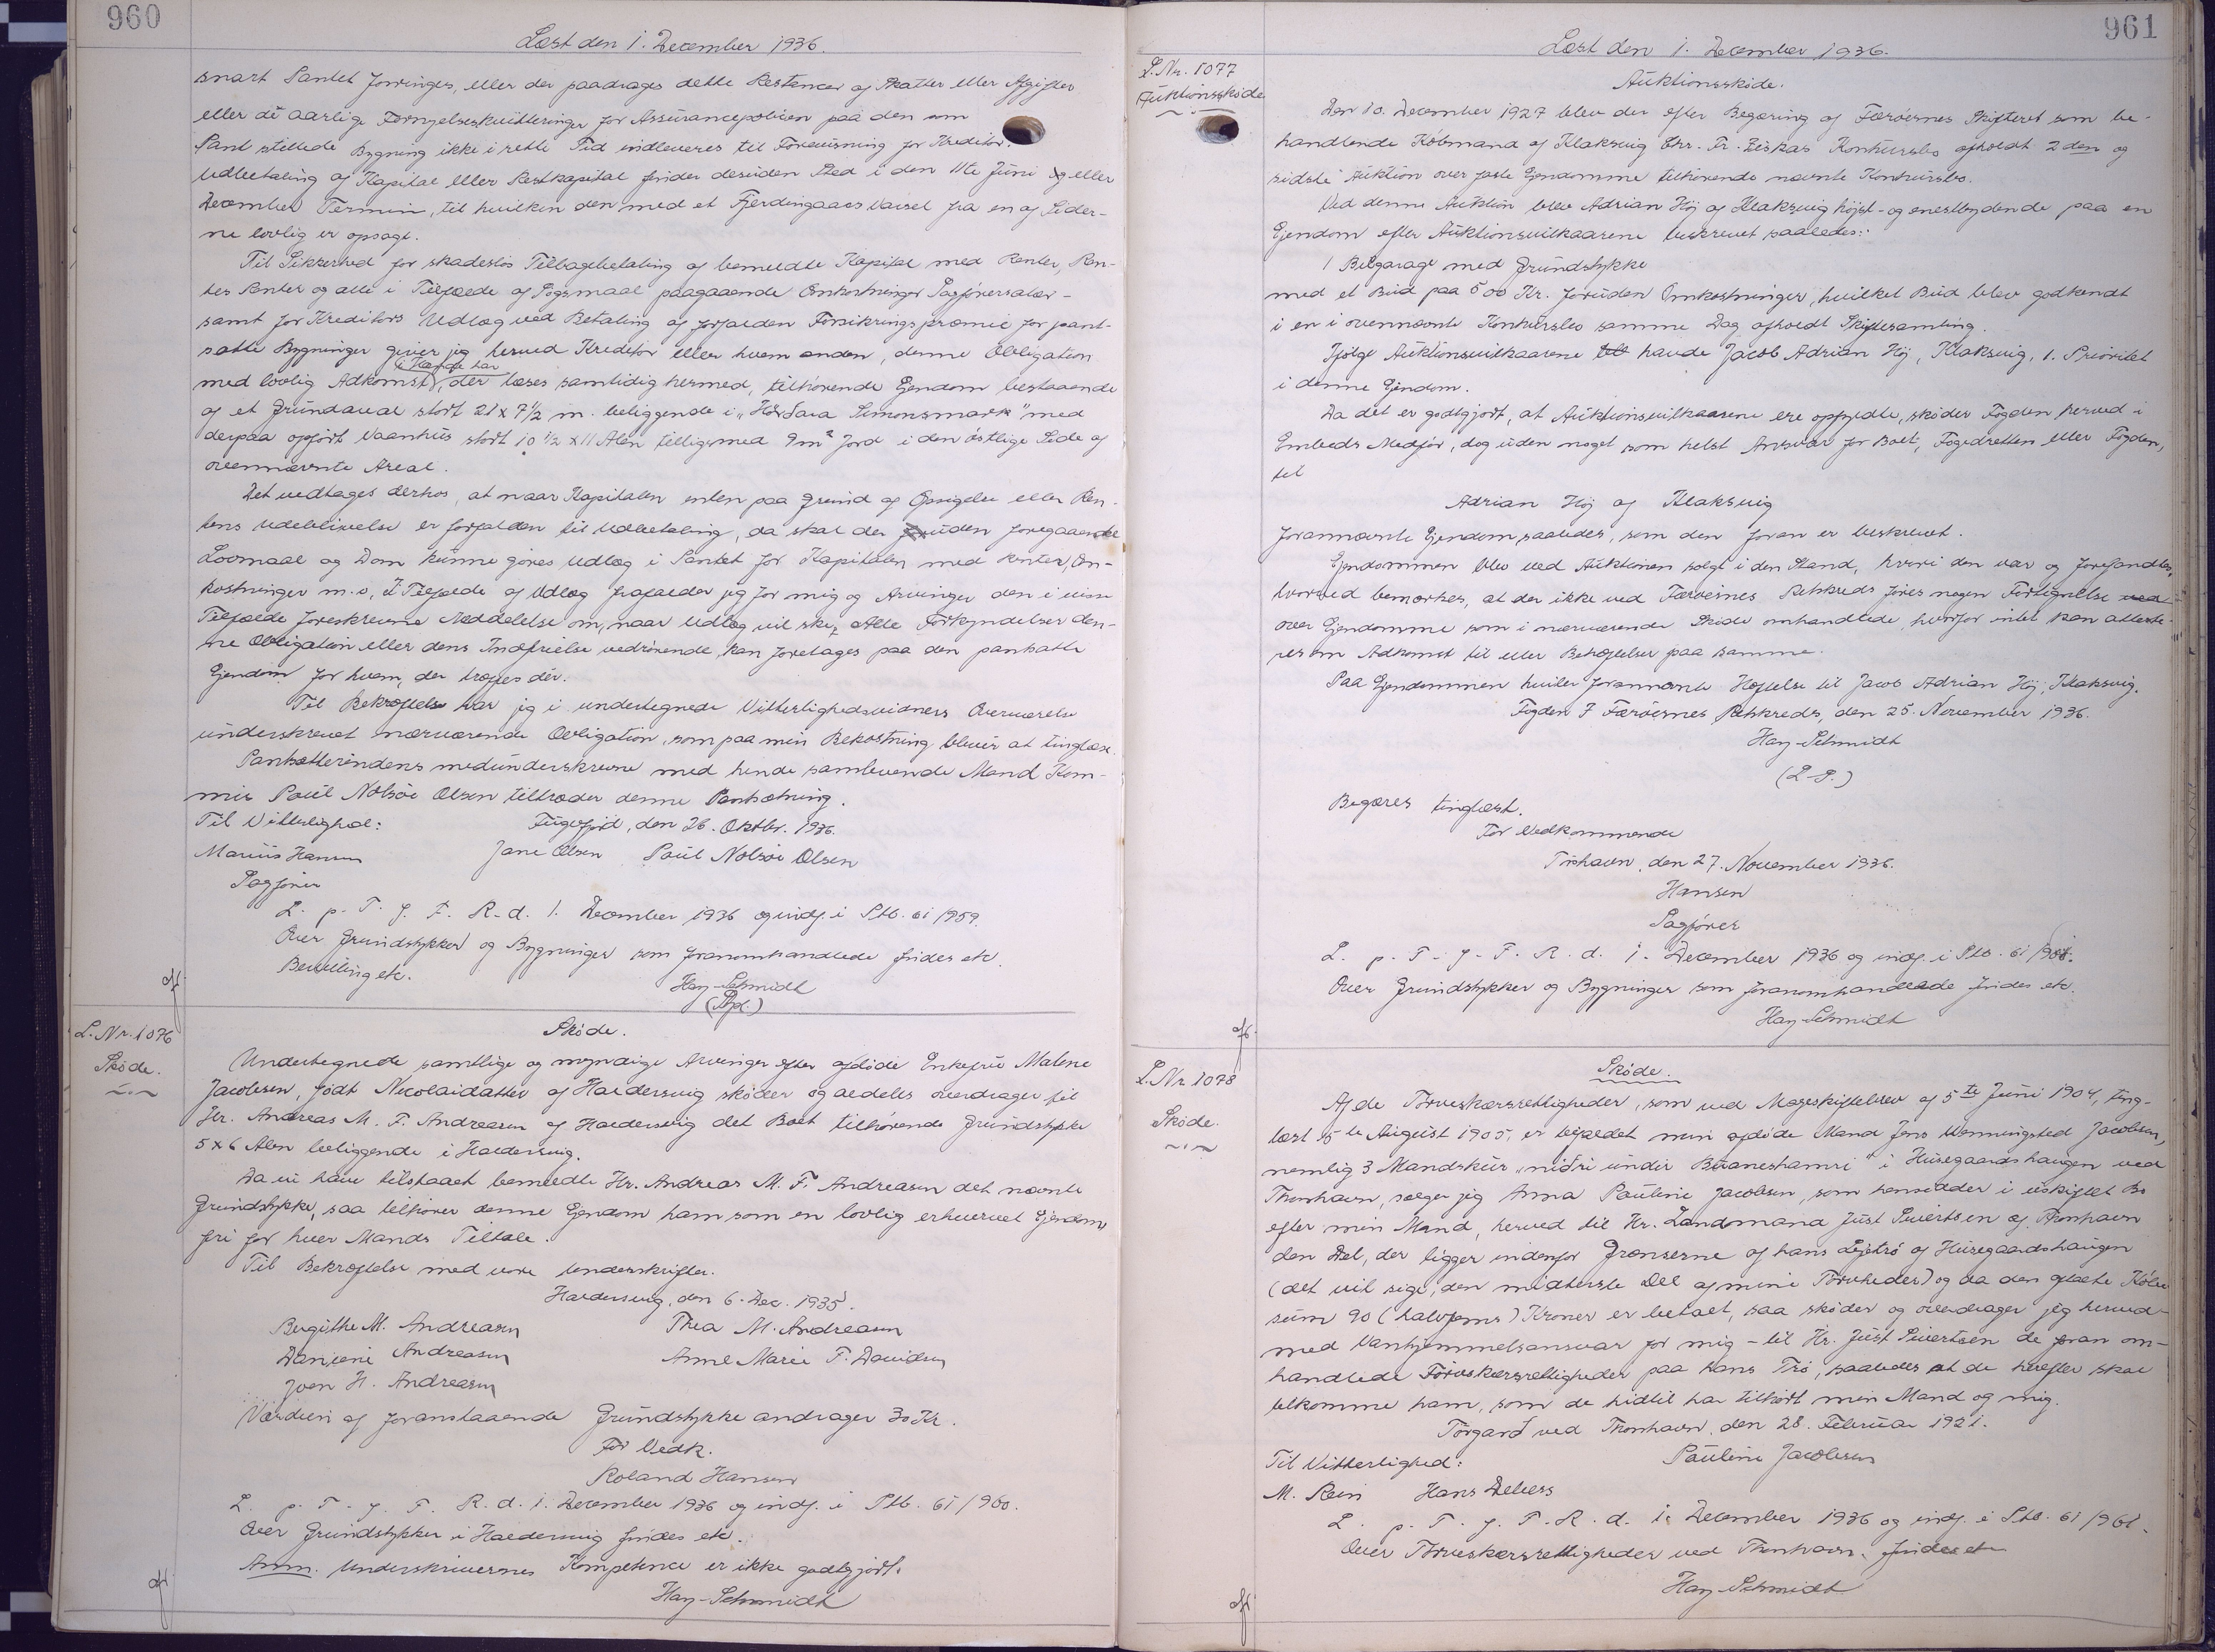 960
Læst den 1. December 1936.
snart Pantet forringes, eller der paadrages dette Restancer af Skatter eller Afgifter
eller de aarlige Fornyelseskvitteringer for Assurancepolicen paa den som
Pant stillede Bygning ikke i rette Tid indleveres til Forevisning for Kreditor.
Udbetaling af Kapital eller Restkapital finder desuden Sted i den 11te Juni og eller
December Termin, til hvilken den med et Fjerdingaars Varsel fra en af Sider-
ne lovlig er opsagt.
Til Sikkerhed for skadeslös Tilbagebetaling af bemeldte Kapital med Renter, Ren-
tes Renter og alle i Tilfælde af Sögsmaal paagaaende Omkostninger Sagförersalær-
samt for Kreditors Udlæg ved Betaling af forfalden Forsikringspræmie for pant-
satte Bygninger giver jeg herved Kreditor eller hvem anden, denne Obligation
i Hænde har
med lovlig Adkomst, der læses samtidig hermed, tilhörende Ejendom bestaaende
af et Grundareal stort 21 x 7 1/2 m. beliggende i "Hör Sara Simonsmark" med
derpaa opfört Vaanhus stort 10 1/2 x 11 Alen tilligemed 9m² Jord i den östlige Side af
ovennævnte Areal.
Det vedtages derhos, at naar Kapitalen enten paa Grund af Opsigelse eller Ren-
tens Udeblivelse er forfalden til Udbetaling, da skal der uden foregaaende
Lovmaal og Dom kunne göres Udlæg i Pantet for Kapitalen med Renter, Om-
kostninger m.v. I Tilfælde af Udlæg frafalder jeg for mig og Arvinger den i visse
Tilfælde foreskrevne Meddelelse om, naar Udlæg vil ske, Alle Forkyndelser den-
ne Obligation eller dens Indfrielse vedrörende, kan foretages paa den pantsatte
Ejendom for hvem, der træffes dér.
Til Bekræftelse har jeg i undertegnede Vitterlighedsvidners Overværelse
underskrevet nærværende Obligation, som paa min Bekostning bliver at tinglæse.
Pantsætterindens medunderskrevne med hende samlevende Mand Kom-
mis Poul Nolsöe Olsen tiltræder denne Pantsætning.
Til Vitterlighed: Fuglefjord, den 26. Oktbr. 1936.
Marius Hansen Jane Olsen Poul Nolsöe Olsen
Sagförer
L. p. T. f. F. R. d. 1. December 1936 og indf. i Ptb. 61/959.
Over Grundstykker og Bygninger som foranomhandlede findes etc.
Bevilling etc.
Hay-Schmidt
L. Nr. 1076
Sköde.
Sköde.
Undertegnede samtlige og myndige Arvinger efter afdöde Enkefru Malene
Jacobsen, födt Nicolaidatter af Haldersvig sköder og aldeles overdrager til
Hr. Andreas M. F. Andreasen af Haldersvig det Boet tilhörende Grundstykke
5 x 6 Alen beliggende i Haldersvig.
Da vi have tilstaaet bemeldte Hr. Andreas M. F. Andreasen det nævnte
Grundstykke, saa tilhörer denne Ejendom ham som en lovlig erhvervet Ejendom,
fri for hver Mands Tiltale.
Til Bekræftelse med vore Underskrifter.
Haldersvig, den 6. Dec. 1935.
Birgithe M. Andreasen Thea M. Andreasen
Danjene Andreasen Anne Marie F. Davidsen
Joen H. Andreasen
Værdien af foranstaaende Grundstykke andrager 30 Kr.
For Vedk.
Roland Hansen
L. p. T. f. F. R. d. 1. December 1936 og indf. i Ptb. 61/960.
Over Grundstykker i Haldersvig findes etc.
Anm. Underskrivernes Kompetence er ikke godtgjort.
Hay-Schmidt
961
Læst den 1. December 1936.
L. Nr. 1077
Auktionssköde
Auktionssköde.
Den 10. December 1927 blev der efter Begæring af Færöernes Skifteret som be-
handlende Köbmand af Klaksvig Chr. Fr. Eiskas Konkursbo afholdt 2den og
sidste Auktion over faste Ejendomme tilhörende nævnte Konkursbo.
Ved denne Auktion blev Adrian Höj af Klaksvig höjst- og enestbydende paa en
Ejendom efter Auktionsvilkaarene beskrevet saaledes:
1 Bilgarage med Grundstykke
med et Bud paa 500 Kr. foruden Omkostninger, hvilket Bud blev godkendt
i en i ovennævnte Konkursbo samme Dag afholdt Skiftesamling.
Ifölge Auktionsvilkaarene havde Jacob Adrian Höj, Klaksvig, 1. Prioritet
i denne Ejendom.
Da det er godtgjort, at Auktionsvilkaarene ere opfyldte, sköder Fogden herved i
Embeds Medför, dog uden noget som helst Ansvar for Boet, Fogedretten eller Fogden,
til
Adrian Höj af Klaksvig
forannævnte Ejendom saaledes, som den foran er beskrevet.
Ejendommen blev ved Auktionen solgt i den Stand, hvori den var og forefandtes,
hvorved bemærkes, at der ikke ved Færöernes Retskreds föres nogen Fortegnelse
over Ejendomme som i nærværende Sköde omhandlede, hvorfor intet kan atteste-
res om Adkomst til eller Behæftelser paa samme.
Paa Ejendommen hviler forannævnte Hæftelse til Jacob Adrian Höj, Klaksvig.
Fogden i Færöernes Retskreds, den 25. November 1936.
Hay-Schmidt
(L.S.)
Begæres tinglæst.
For Vedkommende
Thshavn, den 27. November 1936.
Hansen
Sagförer
L. p. T. f. F. R. d. 1. December 1936 og indf. i Ptb. 61/
Over Grundstykker og Bygninger som foranomhandlede findes etc.
Hay-Schmidt
L. Nr. 1078
Sköde.
Sköde.
Af de Törveskærsrettigheder, som ved Mageskiftebrev af 5te Juni 1904, ting-
læst 15de August 1905, er tilfaldet min afdöde Mand Jens Wenningsted Jacobsen,
nemlig 3 Mandskur "nidri undir Baaneshamri" i Husegaardshaugen ved
Thorshavn, sælger jeg Anna Pauline Jacobsen, som hensidder i uskiftet Bo
efter min Mand, herved til Hr. Landsmand Just Sivertsen af Thorshavn
den Del, der ligger indenfor Grænserne af hans Lejetrö af Husegaardshaugen
(det vil sige, den midterste Del af mine Törvheder) og da den aftalte Köbe-
sum 90 (halvfems) Kroner er betalt, saa sköder og overdrager jeg herved-
med Vanhjemmelsansvar for mig - til Hr. Just Sivertsen de foran om-
handlede Törveskærsrettigheder paa hans Trö, saaledes at de herefter skal
tilkomme ham, som de hidtil har tilhört min Mand og mig.
Törgard ved Thorshavn, den 28. Februar 1921.
Til Vitterlighed: Pauline Jacobsen
M. Rein Hans Debess
L. p. T. f. F. R. d. 1. December 1936 og indf. i Ptb. 61/961.
Over Törveskærsrettigheder ved Thorshavn. findes etc
Hay-Schmidt